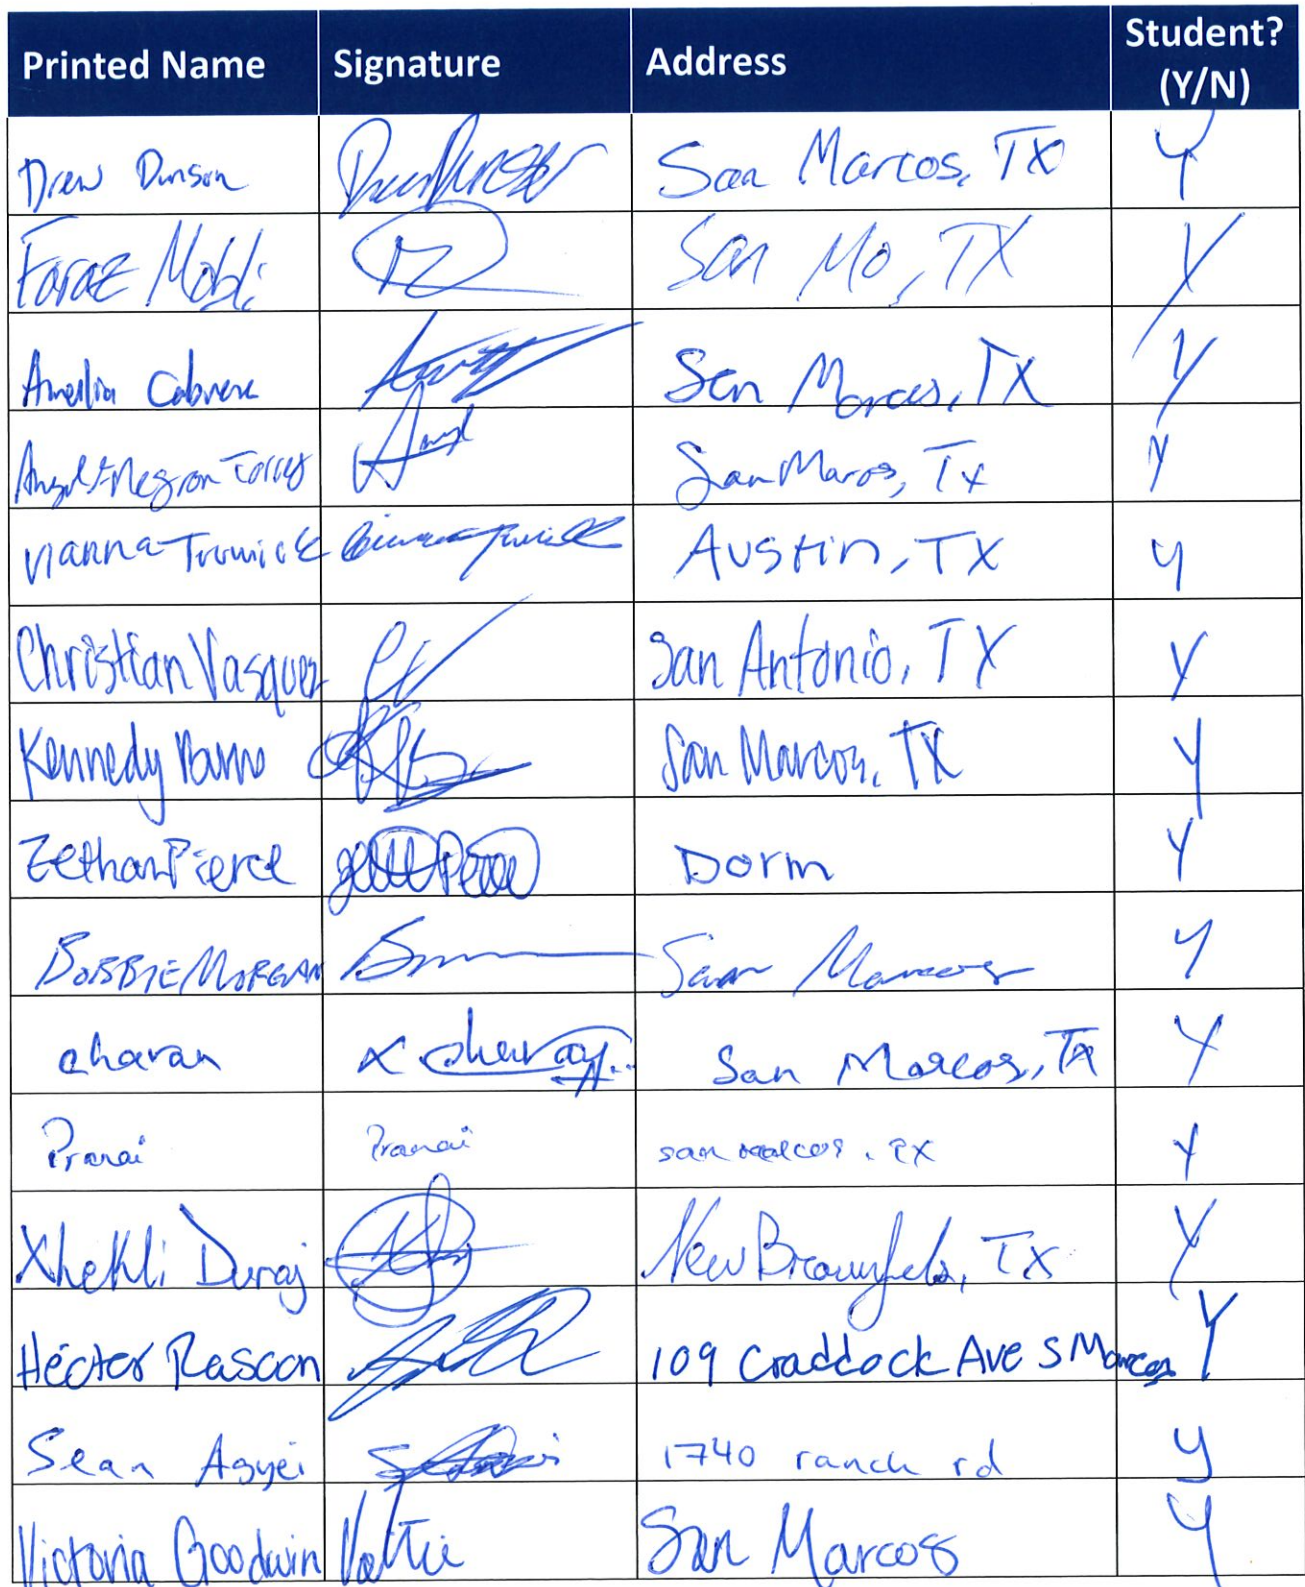 Printed Name Signature Address Student? (Y/N)
Drew Dunson San Marcos, TX Y
Faraz Mobli San Mo, TX Y
Amelia Cabrera San Marcos, TX Y
Negron Torres San Maros, Tx Y
Vianna Trowick Austin, TX y
Christian Vasquez CV San Antonio, TX Y
Kennedy San Marcos, TX Y
Zethan Pierce Dorm Y
BOBBIE MORGAN San Marcos Y
charan x charan San Marcos, TX Y
Pranai Pranai san marcos, TX Y
Xhekli Duraj New Braunfels, TX Y
Héctor Rascon 109 Craddock Ave S Marcos Y
Sean Agyei 1740 ranch rd y
Victoria Goodwin San Marcos Y